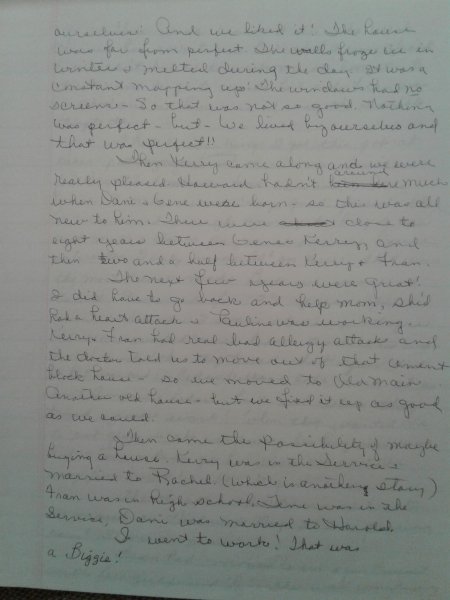 ourselves! And we liked it! The house
was far from perfect. The walls froze ice in
winter & melted during the day. It was a
constant mopping up. The windows had no
screens - So that was not so good. Nothing
was perfect - but - we lived by ourselves and
that was perfect!!
Then Kerry came along and we were
really pleased. Howard hadn't been around much
when Dani & Gene were born - so this was all
new to him. There were close to
eight years between Gene & Kerry, and
then two and a half between Kerry & Fran.
The next few years were great!
I did have to go back and help Mom, she'd
had a heart attack & Pauline was working
Kerry & Fran had real bad allergy attacks and
the doctor told us to move out of that cement
block house - so we moved to Main.
Another old house - but we fixed it up as good
as we could.
Then came the possibility of maybe
buying a house. Kerry was in the Service &
married to Rachel. (which is another story)
Fran was in high school. Gene was in the
Service, Dani was married to Harold.
I went to work! That was
a Biggie!